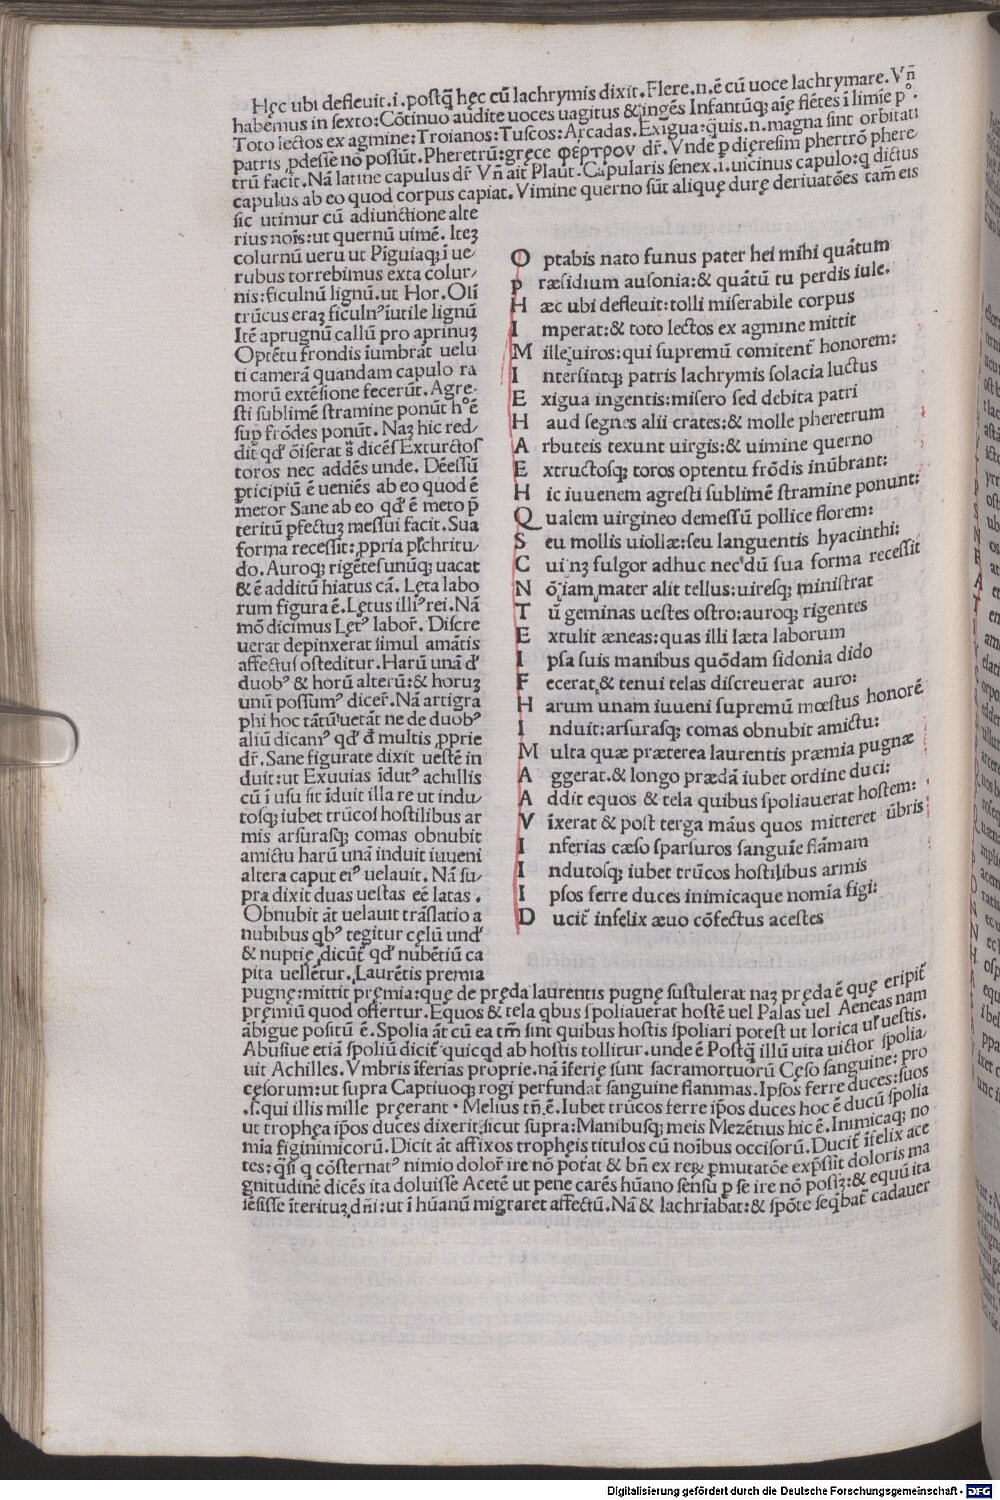 Hęc ubi defleuit.i.postq̃ hęc cũ lachrymis dixit.Flere.n.ẽ cũ uoce lachrymare.Vñ
habemus in sexto:Cõtinuo audite uoces uagitus & ingẽs Infantũq; aię flẽtes ĩ limĩe p°.
Toto lectos ex agmine:Troianos:Tuscos:Arcadas.Exigua:q̃uis.n.magna sint orbitati
patris ꝓdesse nõ possũt.Pheretrũ:gręce φέρτρον dr̃.Vnde p dięresim phertrõ phere/
trũ facit.Nã latine capulus dr̃ Vñ ait Plaut.Capularis senex.i.uicinus capulo:q dictus
capulus ab eo quod corpus capiat.Vimine querno sũt alique durę deriuatões tam̃ eis
sic utimur cũ adiunctione alte
rius nois̃:ut quernũ uimẽ.Iteʒ
colurnũ ueru ut Pĩguiaq; ĩ ue/
rubus torrebimus exta colur/
nis:ficulnũ lignũ.ut Hor.Olĩ
trũcus eraʒ ficuln⁹ ĩutile lignũ
Itẽ aprugnũ callũ pro aprinuʒ
Optẽtu frondis ĩumbrãt uelu
ti camerã quandam capulo ra
morũ extẽsione fecerũt.Agre/
sti sublimẽ stramine ponũt h°ẽ
sup̃ frõdes ponũt.Naʒ hic red/
dit̃ qd' õiserat s̃ dicẽs Exturctos
toros nec addẽs unde.Dẽessũ
ꝑticipiũ ẽ ueniẽs ab eo quod ẽ
metor Sane ab eo qd' ẽ meto p̃
teritũ ꝑfectuʒ messui facit.Sua
forma recessit:ꝓpria pl̃chritu/
do.Auroq; rigẽtes unũq; uacat
& ẽ additũ hiatus cã.Lęta labo
rum figura ẽ.Lętus illi⁹ rei.Nã
mõ dicimus Lęt⁹ labor̃.Discre
uerat depinxerat simul amãtis
affectus ostẽditur.Harũ unã d'
duob⁹ & horũ alterũ:& horuʒ
unũ possum⁹ dicer̃.Nã artigra
phi hoc tãtũ uetãt ne de duob⁹
aliũ dicam⁹ qd' đ multis ꝓprie
dr̃.Sane figurate dixit uestẽ in
duit:ut Exuuias ĩdut⁹ achillis
cũ ĩ usu sit ĩduit illa re ut indu/
tosq; iubet trũcos hostilibus ar
mis arsurasq; comas obnubit
amictu harũ unã induit iuueni
altera caput ei⁹ uelauit.Nã su/
pra dixit duas uestas eẽ latas.
Obnubit ãt uelauit trãslatio a
nubibus qb⁹ tegitur cęlũ und'
& nuptię dicũt̃ qd' nubẽtiũ ca
pita uellẽtur.Laurẽtis premia
O ptabis nato funus pater hei mihi quãtum
p ræsidium ausonia:& quãtũ tu perdis iule.
H æc ubi defleuit:tolli miserabile corpus
I mperat:& toto lectos ex agmine mittit
M ille uiros:qui supremũ comitent̃ honorem:
I ntersintq; patris lachrymis solacia luctus
E xigua ingentis:misero sed debita patri
H aud segnes alii crates:& molle pheretrum
A rbuteis texunt uirgis:& uimine querno
E xtructosq; toros optentu frõdis inũbrant:
H ic iuuenem agresti sublimẽ stramine ponunt:
Q ualem uirgineo demessũ pollice florem:
S eu mollis uiollæ:seu languentis hyacinthi:
C ui nʒ fulgor adhuc nec dũ sua forma recessit
N õ iam mater alit tellus:uiresq; ministrat
T ũ geminas uestes ostro:auroq; rigentes
E xtulit æneas:quas illi læta laborum
I psa suis manibus quõdam sidonia dido
F ecerat,& tenui telas discreuerat auro:
H arum unam iuueni supremũ mœstus honorẽ
I nduit:arsurasq; comas obnubit amictu:
M ulta quæ præterea laurentis præmia pugnæ
A ggerat.& longo prædã iubet ordine duci:
A ddit equos & tela quibus spoliauerat hostem:
V ĩxerat & post terga mãus quos mitteret ũbris
I nferias cæso sparsuros sanguĩe flãmam
I ndutosq; iubet trũcos hostilibus armis
I psos ferre duces inimicaque nomĩa figi:
D ucit̃ infelix æuo cõfectus acestes
pugnę:mittit pręmia:quę de pręda laurentis pugnę sustulerat naʒ pręda ẽ quę eripit̃
pręmiũ quod offertur.Equos & tela qbus spoliauerat hostẽ uel Palas uel Aeneas nam
ãbigue positũ ẽ.Spolia ãt cũ ea tm̃ sint quibus hostis spoliari potest ut lorica ul' uestis.
Abusiue etiã spoliũ dicit̃ quicqd ab hostis tollitur.unde ẽ Postq̃ illũ uita uictor spolia/
uit Achilles.Vmbris ĩferias proprie.nã ĩferię sunt sacramortuorũ Cęso sanguine:pro
cęsorum:ut supra Captiuoq; rogi perfundat sanguine flammas.Ipsos ferre duces:suos
.s.qui illis mille pręerant.Melius tñ ẽ.Iubet trũcos ferre ip̃os duces hoc ẽ ducũ spolia
ut trophęa ip̃os duces dixerit,sicut supra:Manibusq; meis Mezẽtius hic ẽ.Inimicaq; no
mia figinimicorũ.Dicit ãt affixos trophęis titulos cũ noĩbus occisorũ.Ducit̃ ĩfelix ace
tes:q̃si q cõsternat⁹ nimio dolor̃ ire nõ potãt & bñ ex reʒ ꝑmutatõe exp̃ssit doloris ma
gnitudinẽ dicẽs ita doluisse Acetẽ ut pene carẽs hũano sẽsu p se ire nõ posiʒ:& equũ ita
sẽsisse ĩteritũʒ dñi:ut ĩ hũanũ migraret affectũ.Nã & lachrĩabat:& spõte seqbat̃ cadauer
Digitalisierung gefördert durch die Deutsche Forschungsgemeinschaft - DFG